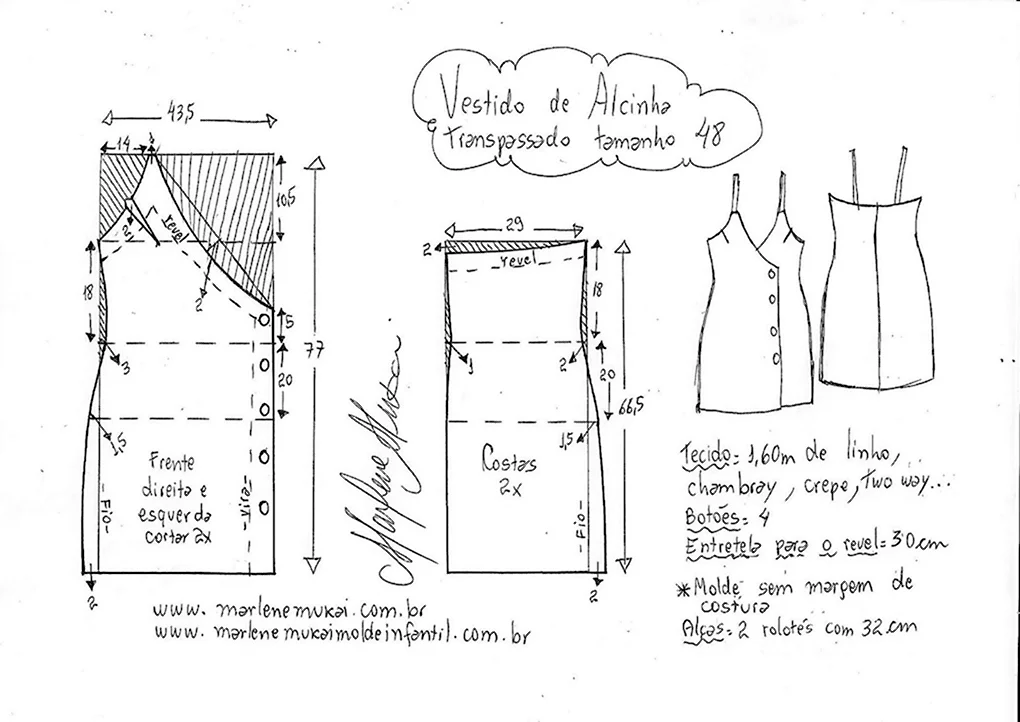 Vestido de Alcinha
Transpassado tamanho 48
43,5
14
1
10,5
revel
2
2
18
5
77
3
20
1,5
Frente
direita e
esquerda
cortar 2x
-Fio-
vira-
2
29
2
revel
18
1
2
20
66,5
1,5
Costas
2x
-Fio-
2
Marlene Mukai
Tecido= 1,60m de linho,
chambray, crepe, Two way...
Botões= 4
Entretela para o revel= 30cm
*Molde sem margem de
costura
Alças= 2 rolotês com 32cm
www.marlenemukai.com.br
www.marlenemukaimoldeinfantil.com.br